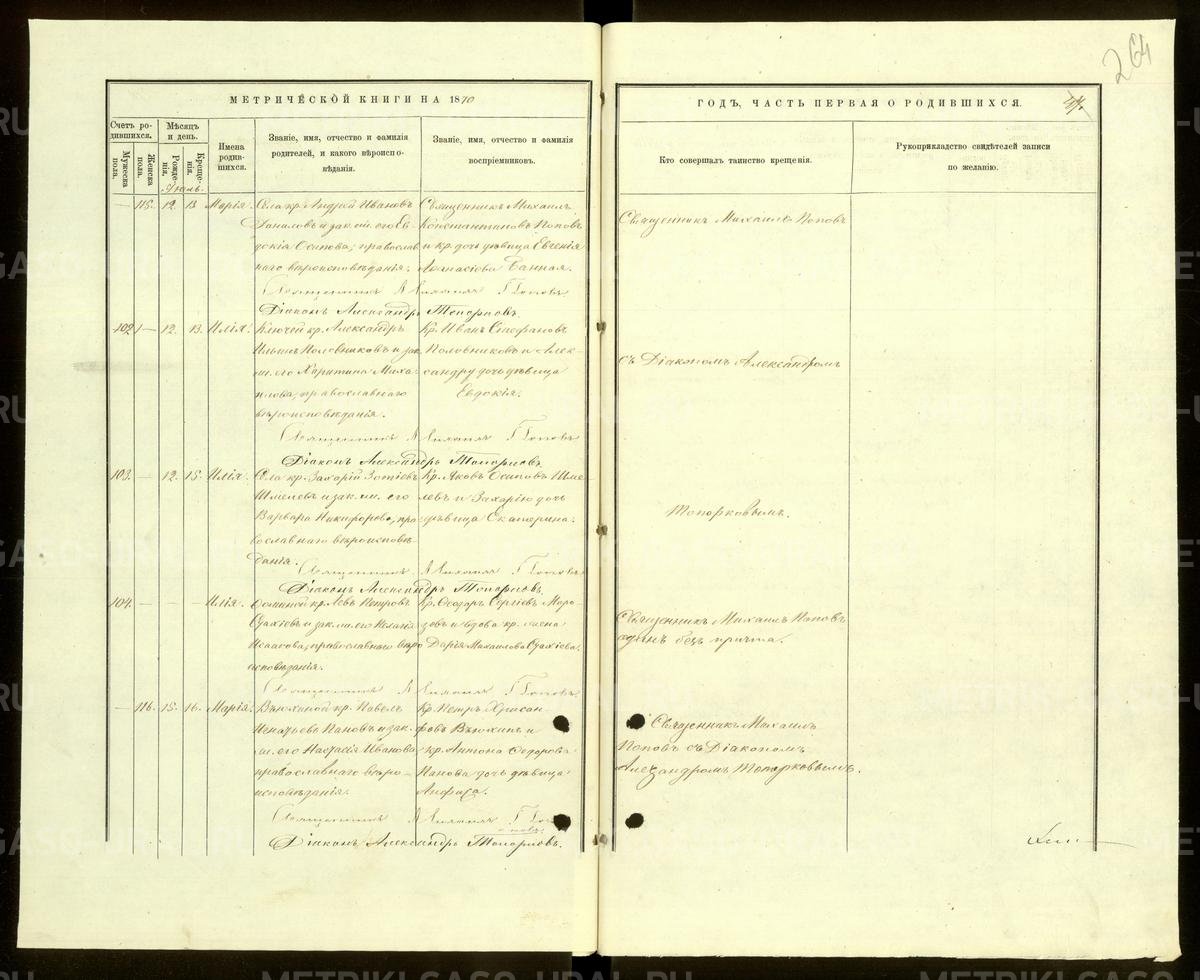 264
МЕТРИЧЕСКОЙ КНИГИ НА 1870
ГОДЪ, ЧАСТЬ ПЕРВАЯ О РОДИВШИХСЯ.
Счетъ ро-
дившихся.
Мужеска
пола.
Женска
пола.
Мѣсяцъ
и день.
Рожде-
нія.
Креще-
нія.
Имена
родив-
шихся.
Званіе, имя, отчество и фамилія
родителей, и какого вѣроиспо-
вѣданія.
Званіе, имя, отчество и фамилія
воспріемниковъ.
Кто совершалъ таинство крещенія.
Рукоприкладство свидѣтелей записи
по желанію.
Іюль.
— 115. 12. 13 Марія
Села кр. Андрей Ивановъ
Даниловъ и зак. ж. его Ев-
докія Осипова, православ
наго вѣроисповѣданія,
Священникъ Михаилъ
Константиновъ Поповъ
и кр. дочь дѣвица Евгенія
Аѳанасіова Банная.
Священникъ Михаилъ Поповъ
Священникъ Михаилъ Поповъ
Діаконъ Александръ Топорковъ.
102 — 12. 13. Илія.
Ключей кр. Александръ
Ильинъ Половниковъ и зак
ж. его Харитина Миха-
илова, православнаго
вѣроисповѣданія.
Кр. Иванъ Стефановъ
Половниковъ и Алек-
сандру дочь дѣвица
Евдокія.
съ Діакономъ Александромъ
Священникъ Михаилъ Поповъ
Діаконъ Александръ Топорковъ.
103. — 12. 15. Илія.
Села кр. Захарій Зотіевъ
Шмелевъ и зак. ж. его
Варвара Никифорова, пра
вославнаго вѣроисповѣ-
данія.
Кр. Яковъ Осиповъ Шме-
левъ и Захарію дочь
дѣвица Екатерина.
Топорковымъ.
Священникъ Михаилъ Поповъ
Діаконъ Александръ Топорковъ.
104. — — — Илія.
кр. Левъ Петровъ
и зак. ж. его Пелагія
Исаакова, православнаго вѣро
исповѣданія.
Кр. Ѳеодоръ Сергіевъ Моро-
зовъ и вдова кр. жена
Дарія Михаилова
Священникъ Михаилъ Поповъ
одинъ безъ причта.
Священникъ Михаилъ Поповъ
— 116. 15. 16. Марія.
кр. Павелъ
Игнатьевъ Пановъ и зак.
ж. его Настасія Иванова
православнаго вѣро-
исповѣданія.
Кр. Петръ Хрисан-
фовъ Вьюхинъ и
кр. Антона Ѳедорова
Панова дочь дѣвица
Анфиса.
Священникъ Михаилъ
Поповъ съ Діакономъ
Александромъ Топорковымъ.
Священникъ Михаилъ Поповъ
Діаконъ Александръ Топорковъ.